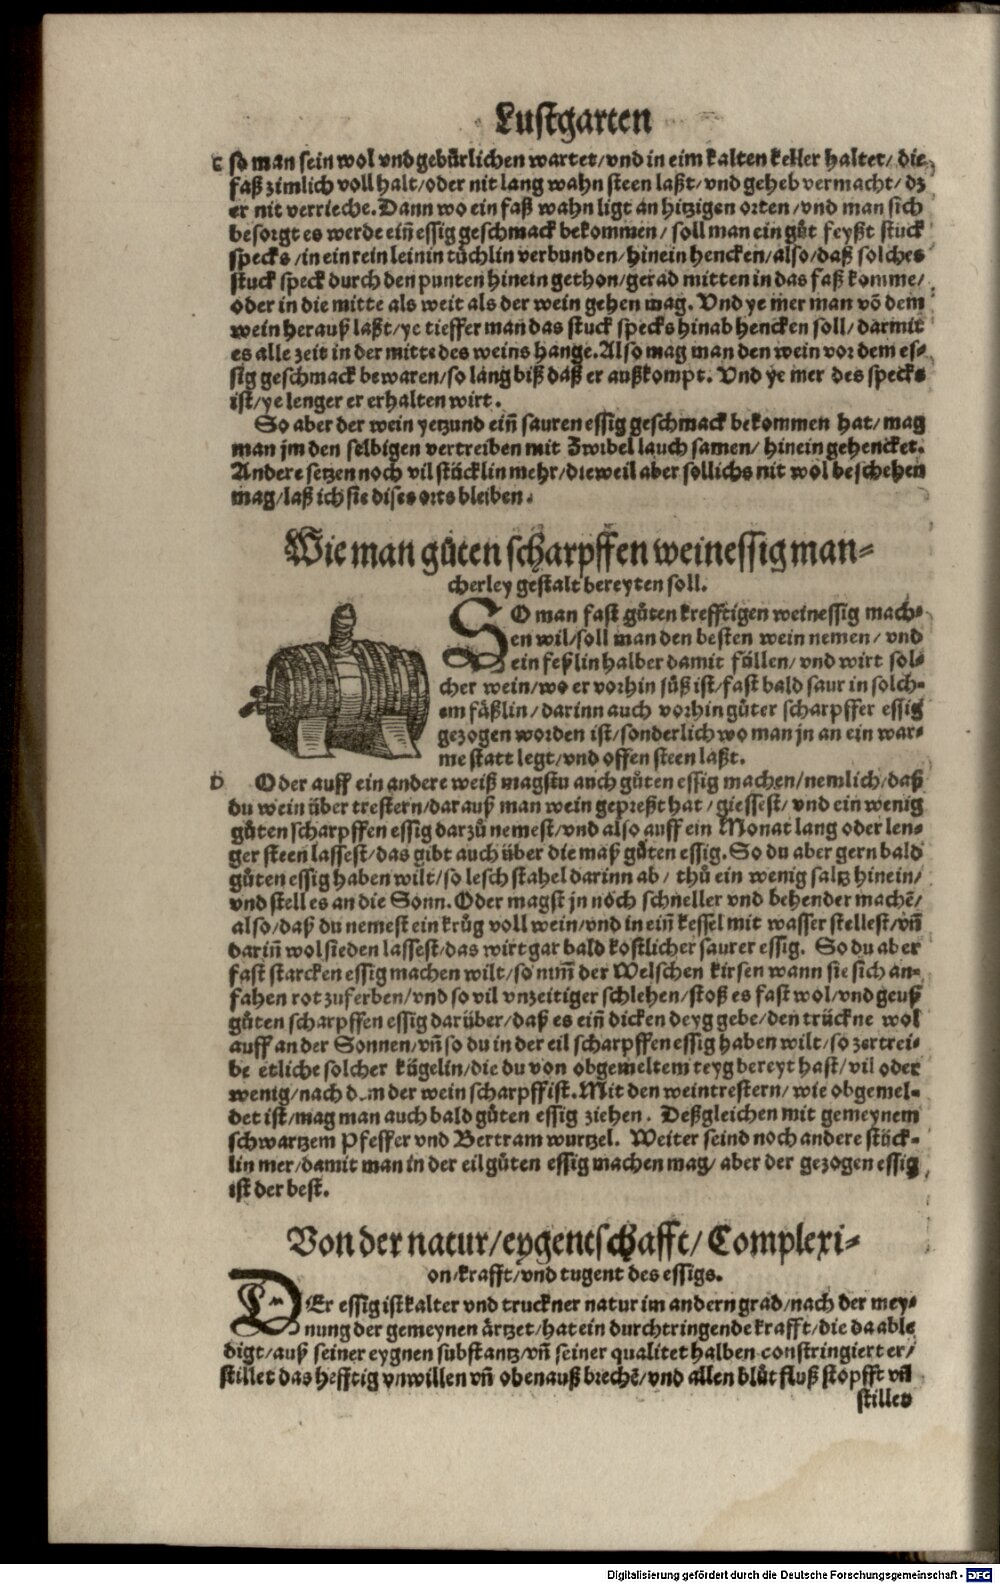 Lustgarten
C so man sein wol vnd gebürlichen wartet/vnd in eim kalten keller haltet/ die
faß zimlich voll halt/oder nit lang wahn steen laßt/vnd geheb vermacht/ dz
er nit verrieche. Dann wo ein faß wahn ligt an hitzigen orten/vnd man sich
besorgt es werde ein̄ essig geschmack bekommen/ soll man ein gůt feyßt stuck
specks/in ein rein leinin tüchlin verbunden/hinein hencken/also/daß solches
stuck speck durch den punten hinein gethon/gerad mitten in das faß komme/
oder in die mitte als weit als der wein gehen mag. Vnd ye mer man võ dem
wein herauß laßt/ye tieffer man das stuck specks hinab hencken soll/ darmit
es alle zeit in der mitte des weins hange. Also mag man den wein vor dem es⸗
sig geschmack bewaren/so lang biß daß er außkompt. Vnd ye mer des specks
ist/ye lenger er erhalten wirt.
So aber der wein yetzund ein̄ sauren essig geschmack bekommen hat/ mag
man jm den selbigen vertreiben mit Zwibel lauch samen/ hinein gehencket.
Andere setzen noch vil stücklin mehr/dieweil aber sollichs nit wol beschehen
mag/laß ich sie dises orts bleiben.
Wie man gůten scharpffen weinessig man⸗
cherley gestalt bereyten soll.
SO man fast gůten krefftigen weinessig mach⸗
en wil/soll man den besten wein nemen/ vnd
ein feßlin halber damit füllen/ vnd wirt sol⸗
cher wein/wo er vorhin süß ist/fast bald saur in solch⸗
em fäßlin/darinn auch vorhin gůter scharpffer essig
gezogen worden ist/sonderlich wo man jn an ein war⸗
me statt legt/vnd offen steen laßt.
D Oder auff ein andere weiß magstu auch gůten essig machen/nemlich/daß
du wein über trestern/darauß man wein gepreßt hat/giessest/ vnd ein wenig
gůten scharpffen essig darzů nemest/vnd also auff ein Monat lang oder len⸗
ger steen lassest/das gibt auch über die maß gůten essig. So du aber gern bald
gůten essig haben wilt/so lesch stahel darinn ab/ thů ein wenig saltz hinein/
vnd stell es an die Sonn. Oder magst jn noch schneller vnd behender machē/
also/daß du nemest ein krůg voll wein/vnd in ein̄ kessel mit wasser stellest/vn̄
darin̄ wol sieden lassest/das wirt gar bald kostlicher saurer essig. So du aber
fast starcken essig machen wilt/so nim̄ der Welschen kirsen wann sie sich an⸗
fahen rot zuferben/vnd so vil vnzeitiger schlehen/stoß es fast wol/vnd geuß
gůten scharpffen essig darüber/daß es ein̄ dicken deyg gebe/den trückne wol
auff an der Sonnen/vn̄ so du in der eil scharpffen essig haben wilt/so zertrei⸗
be etliche solcher kügelin/die du von obgemeltem teyg bereyt hast/vil oder
wenig/nach dem der wein scharpff ist. Mit den weintrestern/ wie obgemel⸗
det ist/mag man auch bald gůten essig ziehen. Deßgleichen mit gemeynem
schwartzem Pfeffer vnd Bertram wurtzel. Weiter seind noch andere stück⸗
lin mer/damit man in der eil gůten essig machen mag/ aber der gezogen essig
ist der best.
Von der natur/eygentschafft/ Complexi⸗
on/krafft/vnd tugent des essigs.
DEr essig ist kalter vnd truckner natur im andern grad/nach der mey⸗
nung der gemeynen ärtzet/hat ein durchtringende krafft/die da able
digt/auß seiner eygnen substantz/vn̄ seiner qualitet halben constringiert er/
stillet das hefftig vnwillen vn̄ obenauß brechē/vnd allen blůt fluß stopfft vn̄
stillet
Digitalisierung gefördert durch die Deutsche Forschungsgemeinschaft - DFG